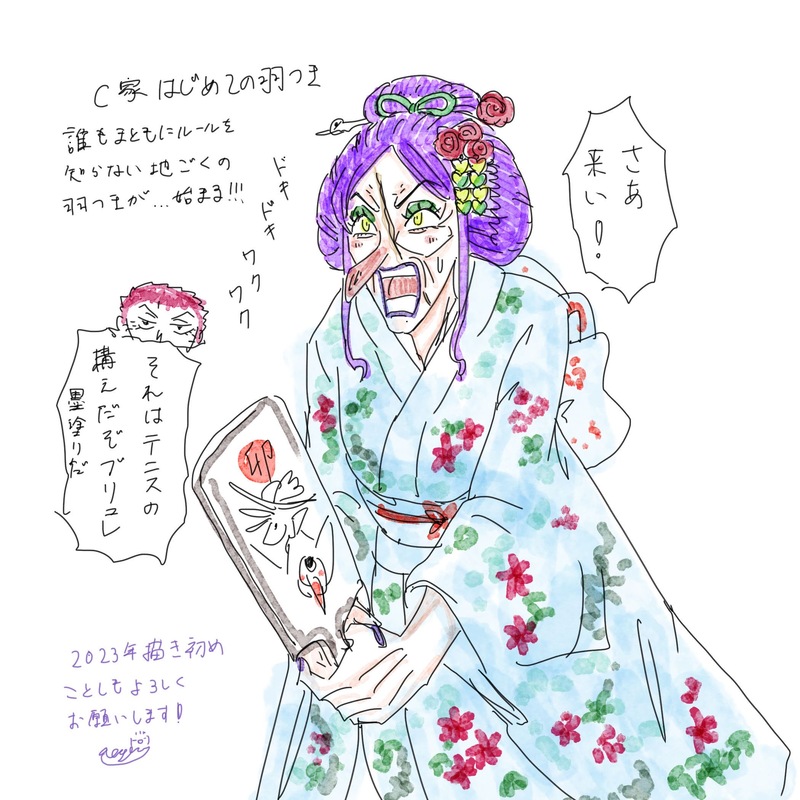 C家 はじめての羽つき
誰もまともにルールを
知らない地ごくの
羽つきが…始まる!!!
ドキ
ドキ
ワク
ワク
さあ
来い!
それはテニスの
構えだぞブリュレ
墨塗りだ
卯
2023年描き初め
ことしもよろしく
お願いします!